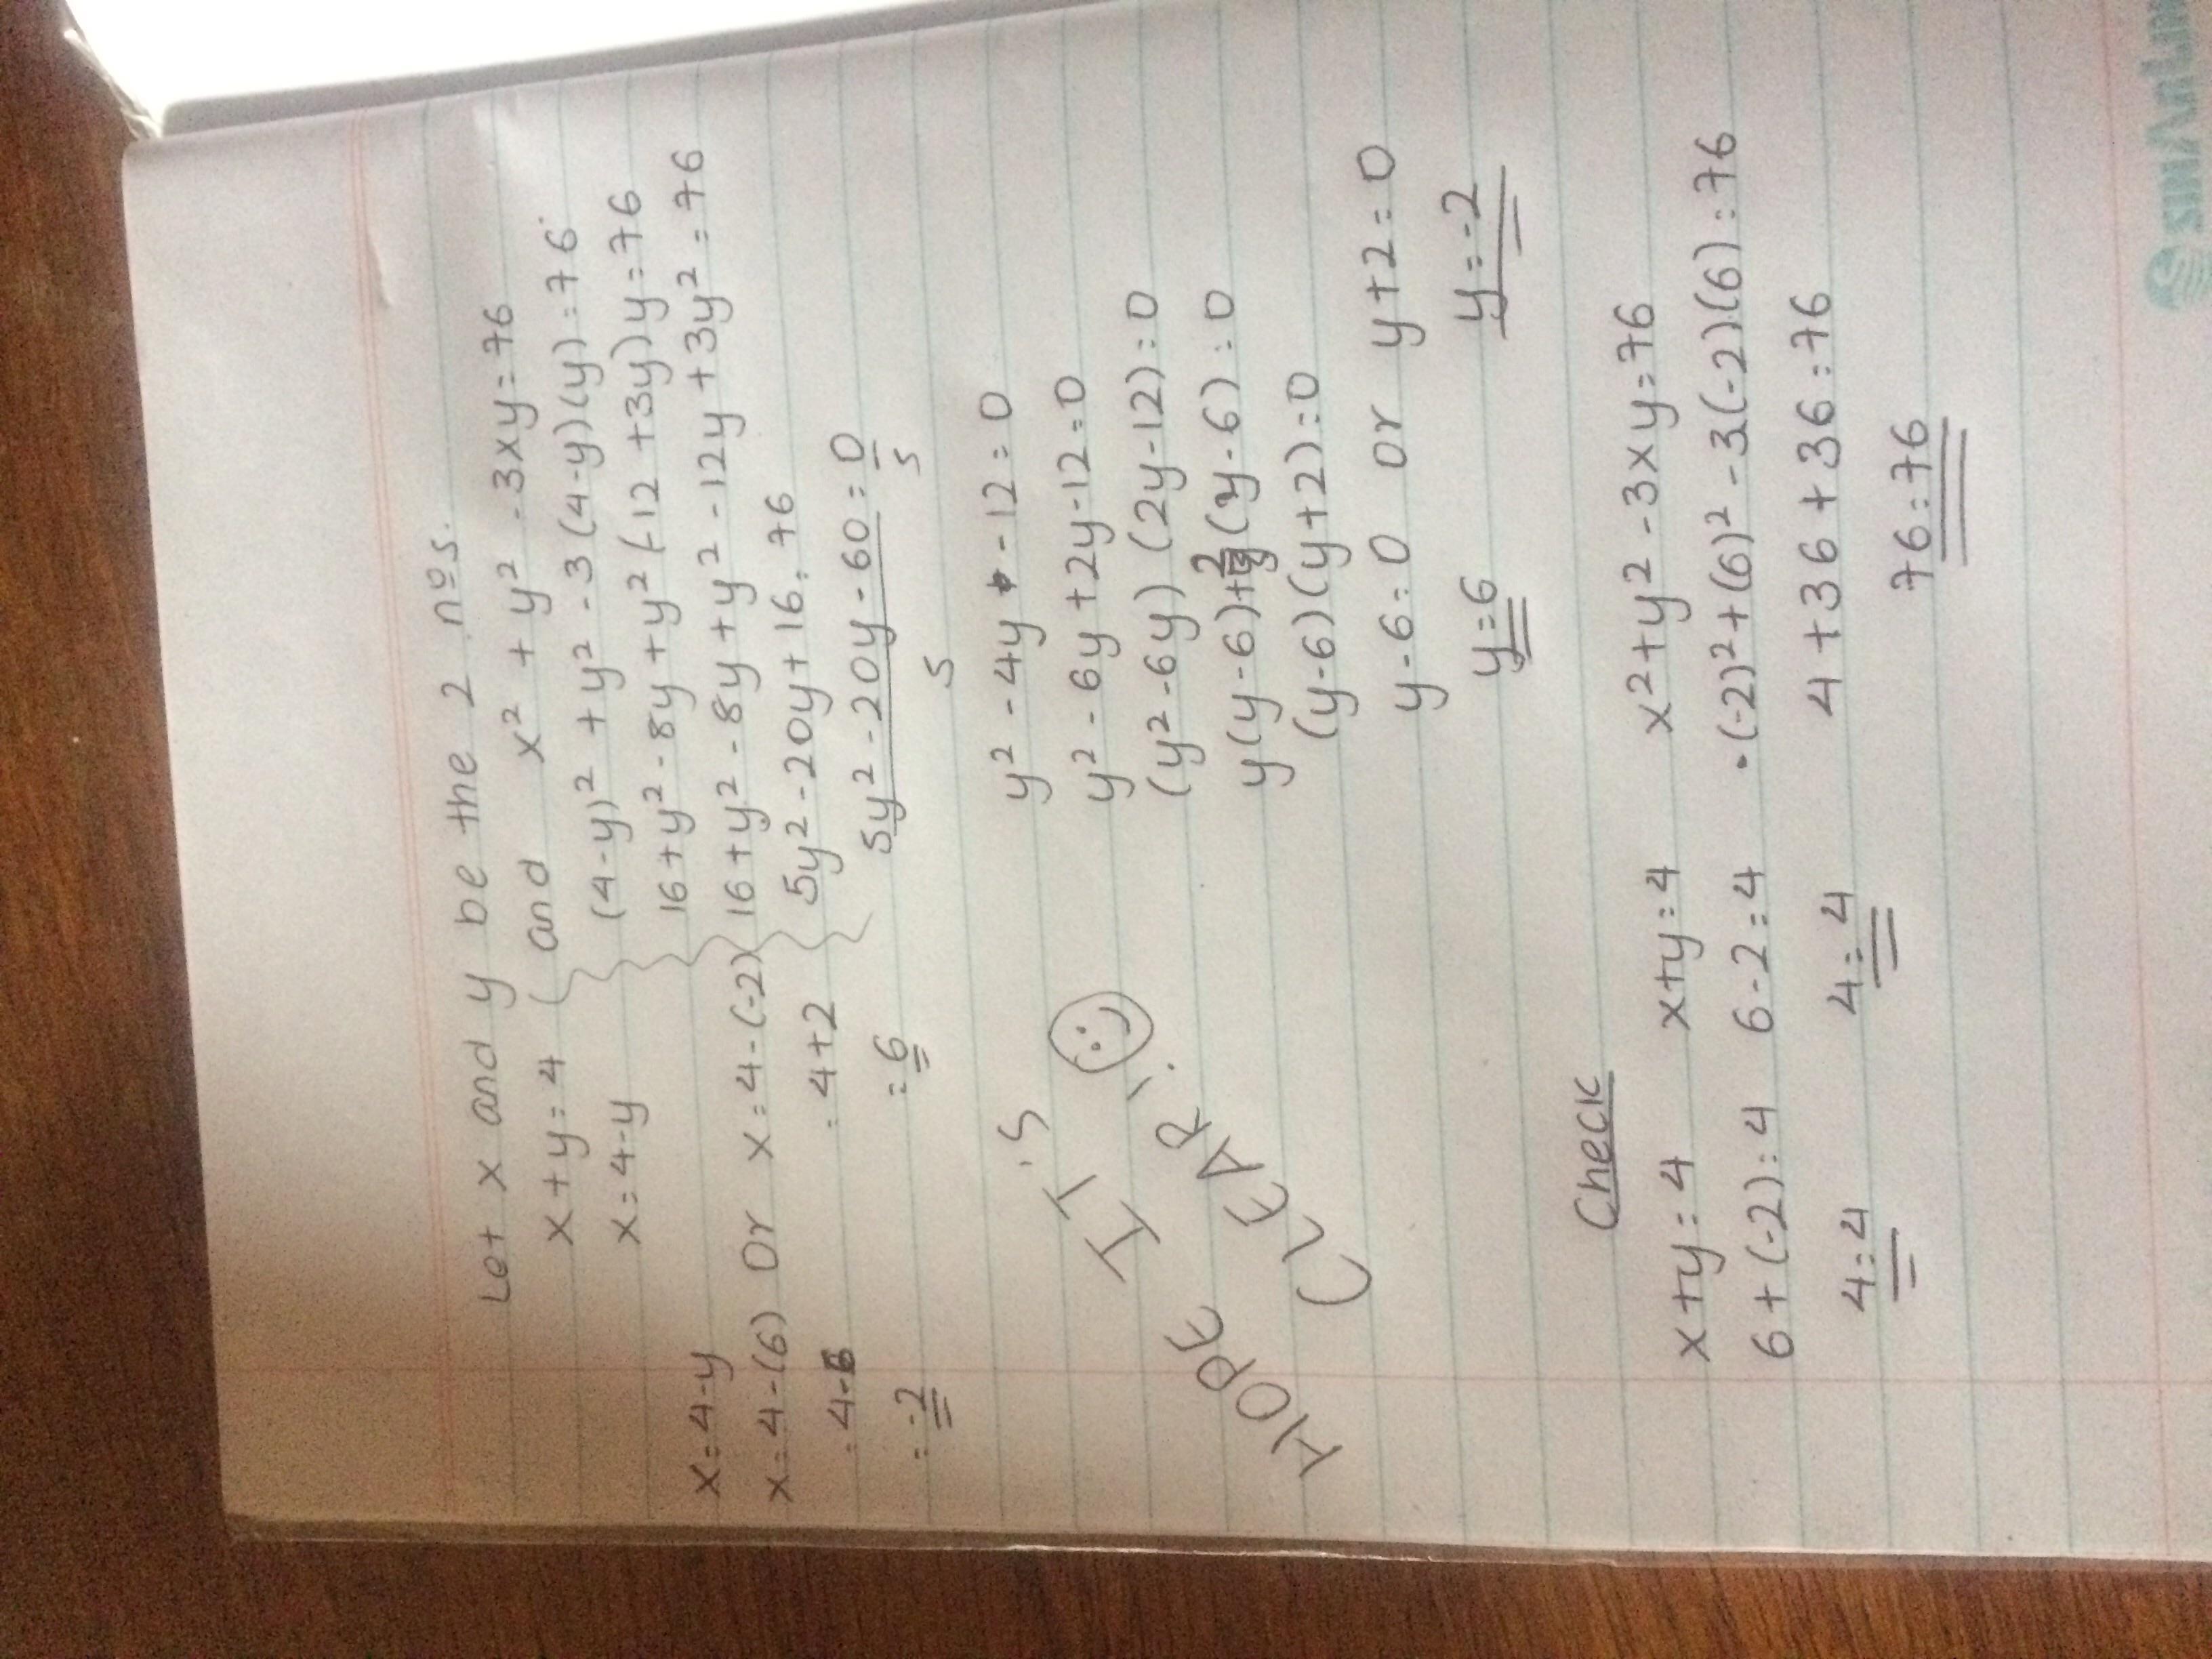 Let x and y be the 2 nos.
x + y = 4 and x² + y² - 3xy = 76
x = 4-y (4-y)² + y² - 3(4-y)(y) = 76
16 + y² - 8y + y² (-12 + 3y)y = 76
x = 4-y 16 + y² - 8y + y² - 12y + 3y² = 76
x = 4-(6) Or x = 4-(-2) 5y² - 20y + 16 = 76
= 4-6 = 4+2 5y² - 20y - 60 = 0
= -2 = 6 5 5
y² - 4y - 12 = 0
y² - 6y + 2y - 12 = 0
(y² - 6y) (2y - 12) = 0
y(y-6)+2(y-6) = 0
(y-6)(y+2) = 0
y-6 = 0 or y+2 = 0
y = 6 y = -2
HOPE IT'S CLEAR!
Check
x+y = 4 x+y = 4 x² + y² - 3xy = 76
6 + (-2) = 4 6 - 2 = 4 (-2)² + (6)² - 3(-2)(6) = 76
4 = 4 4 = 4 4 + 36 + 36 = 76
76 = 76
SINARLINE